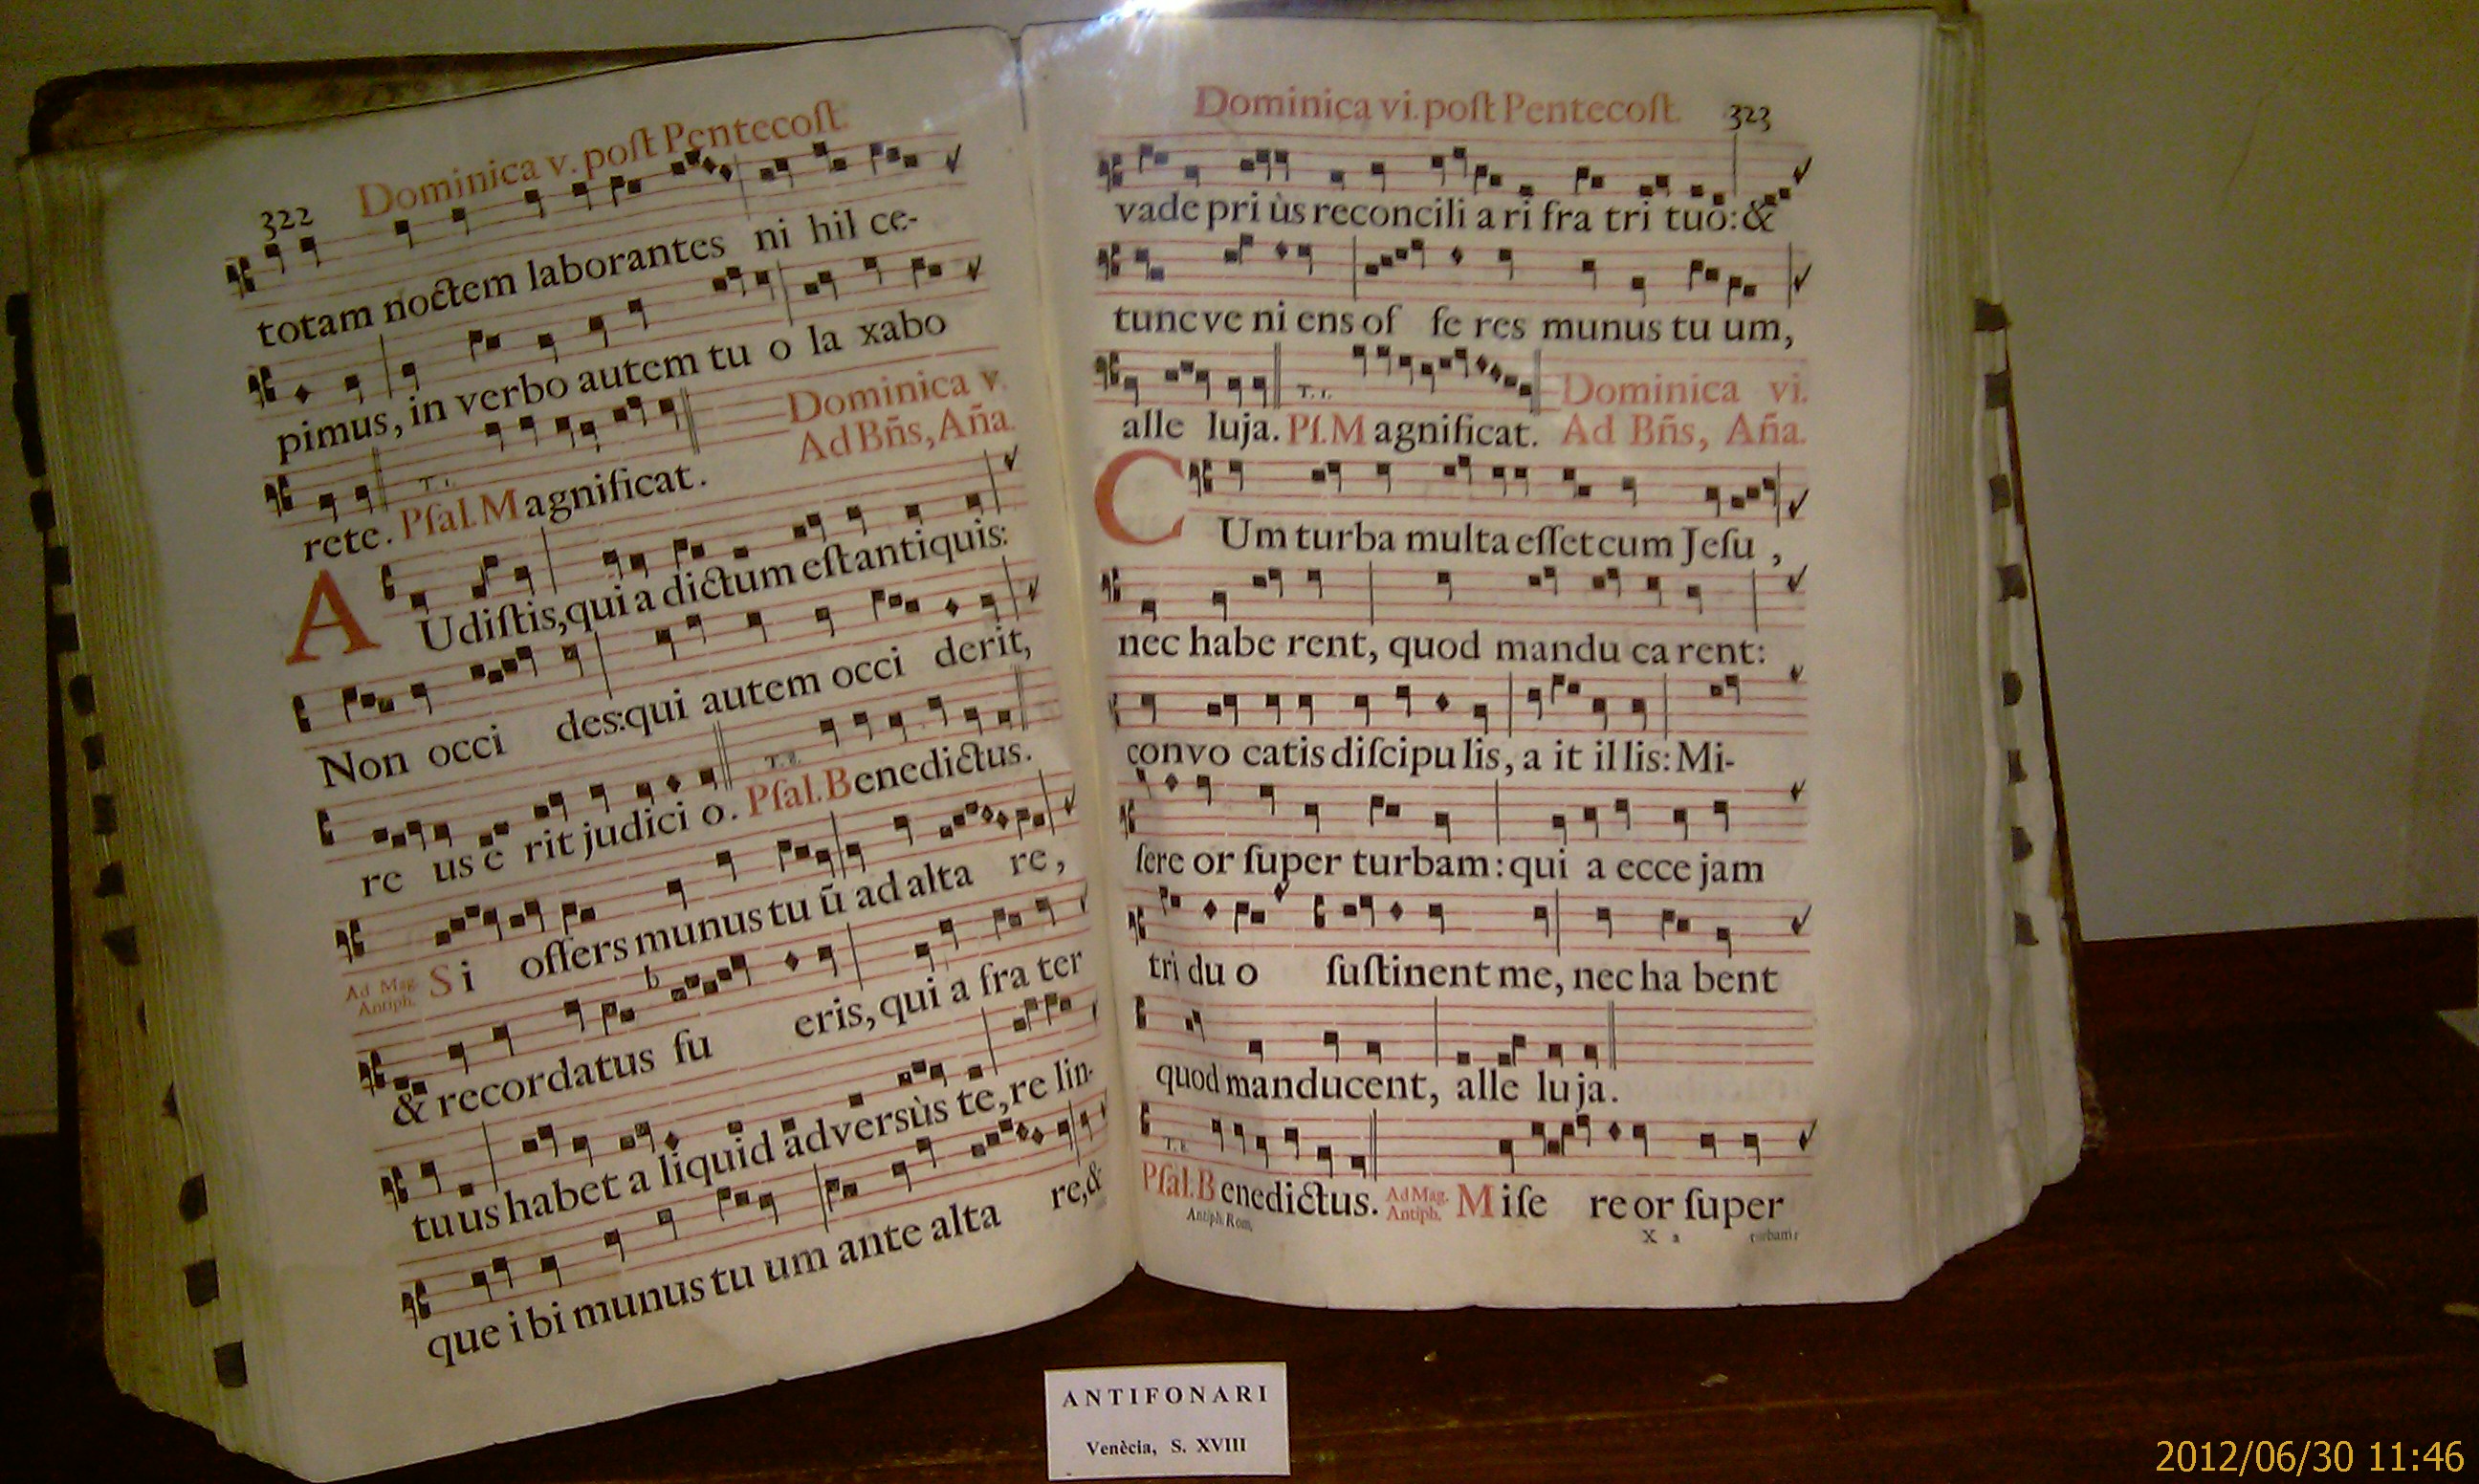 322 Dominica v. poſt Pentecoſt.
totam noctem laborantes ni hil ce-
pimus, in verbo autem tu o la xabo
rete. Pſal. Magnificat. Dominica v.
Ad Bñs, Aña.
AUdiſtis, qui a dictum eſt antiquis:
Non occi des: qui autem occi derit,
re us e rit judici o. Pſal. Benedictus.
Ad Mag. Antiph. Si offers munus tu ū ad alta re,
& recordatus fu eris, qui a fra ter
tuus habet a liquid adversùs te, re lin-
que i bi munus tu um ante alta re, &
Dominica vi. poſt Pentecoſt. 323
vade pri ùs reconcili a ri fra tri tuo: &
tunc ve ni ens of fe res munus tu um,
alle luja. Pſ. Magnificat. Dominica vi.
Ad Bñs, Aña.
CUm turba multa eſſet cum Jeſu,
nec habe rent, quod mandu ca rent:
convo catis diſcipu lis, a it il lis: Mi-
ſere or ſuper turbam: qui a ecce jam
tri du o ſuſtinent me, nec ha bent
quod manducent, alle lu ja.
Pſal. Benedictus. Ad Mag. Antiph. Miſe re or ſuper
Antiph. Rom. X
ANTIFONARI
Venècia, S. XVIII
2012/06/30 11:46